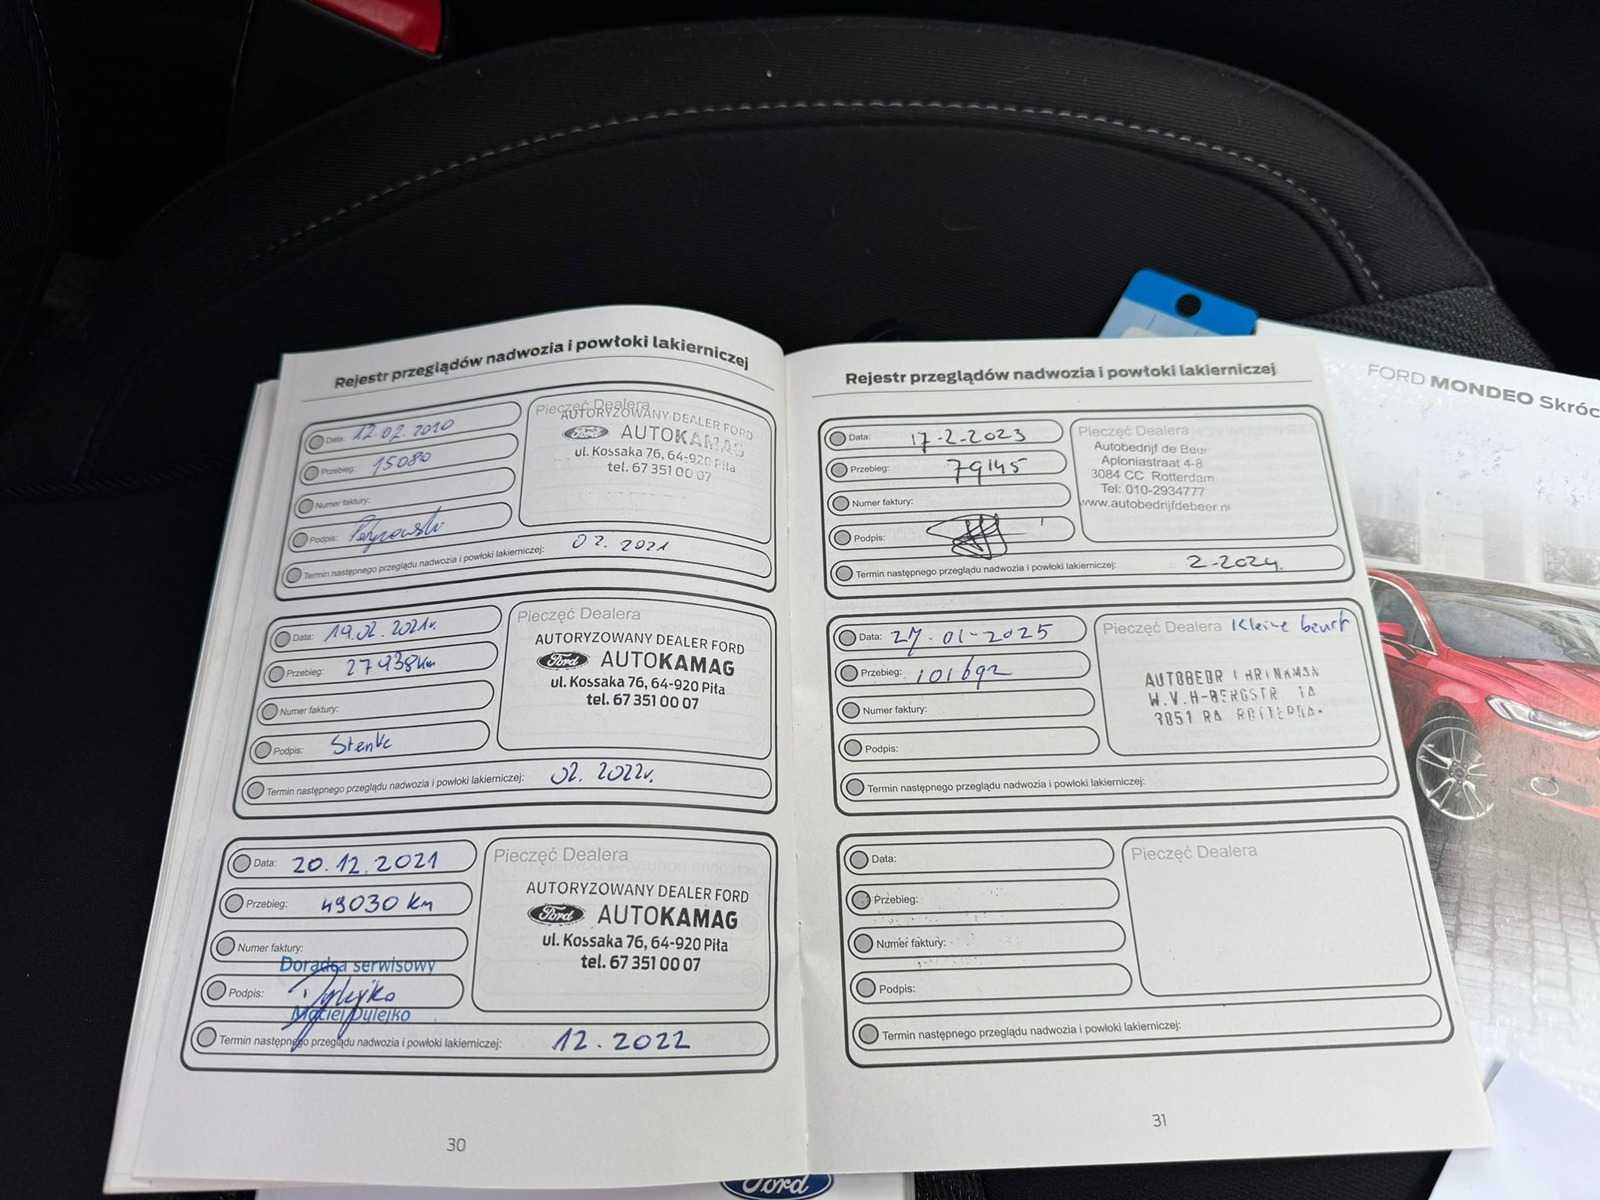 Rejestr przeglądów nadwozia i powłoki lakierniczej
Data: 12.02.2020
Przebieg: 15080
Numer faktury:
Podpis:
Pieczęć Dealera
AUTORYZOWANY DEALER FORD
Ford AUTOKAMAG
ul. Kossaka 76, 64-920 Piła
tel. 67 351 00 07
Termin następnego przeglądu nadwozia i powłoki lakierniczej: 02.2021
Data: 19.02.2021r.
Przebieg: 27938km
Numer faktury:
Podpis: Stenke
Pieczęć Dealera
AUTORYZOWANY DEALER FORD
Ford AUTOKAMAG
ul. Kossaka 76, 64-920 Piła
tel. 67 351 00 07
Termin następnego przeglądu nadwozia i powłoki lakierniczej: 02.2022r.
Data: 20.12.2021
Przebieg: 49030 km
Numer faktury:
Doradca serwisowy
Podpis:
Maciej Dylejko
Pieczęć Dealera
AUTORYZOWANY DEALER FORD
Ford AUTOKAMAG
ul. Kossaka 76, 64-920 Piła
tel. 67 351 00 07
Termin następnego przeglądu nadwozia i powłoki lakierniczej: 12.2022
30
Rejestr przeglądów nadwozia i powłoki lakierniczej
Data: 17-2-2023
Przebieg: 79145
Numer faktury:
Podpis:
Pieczęć Dealera
Autobedrijf de Beer
Aploniastraat 4-8
3084 CC Rotterdam
Tel: 010-2934777
www.autobedrijfdebeer.nl
Termin następnego przeglądu nadwozia i powłoki lakierniczej: 2-2024.
Data: 27-01-2025
Przebieg: 101692
Numer faktury:
Podpis:
Pieczęć Dealera Kleine beurt
W.V.H-BERGSTR
3051 RA
Termin następnego przeglądu nadwozia i powłoki lakierniczej:
Data:
Przebieg:
Numer faktury:
Podpis:
Pieczęć Dealera
Termin następnego przeglądu nadwozia i powłoki lakierniczej:
31
FORD MONDEO Skróc
Ford